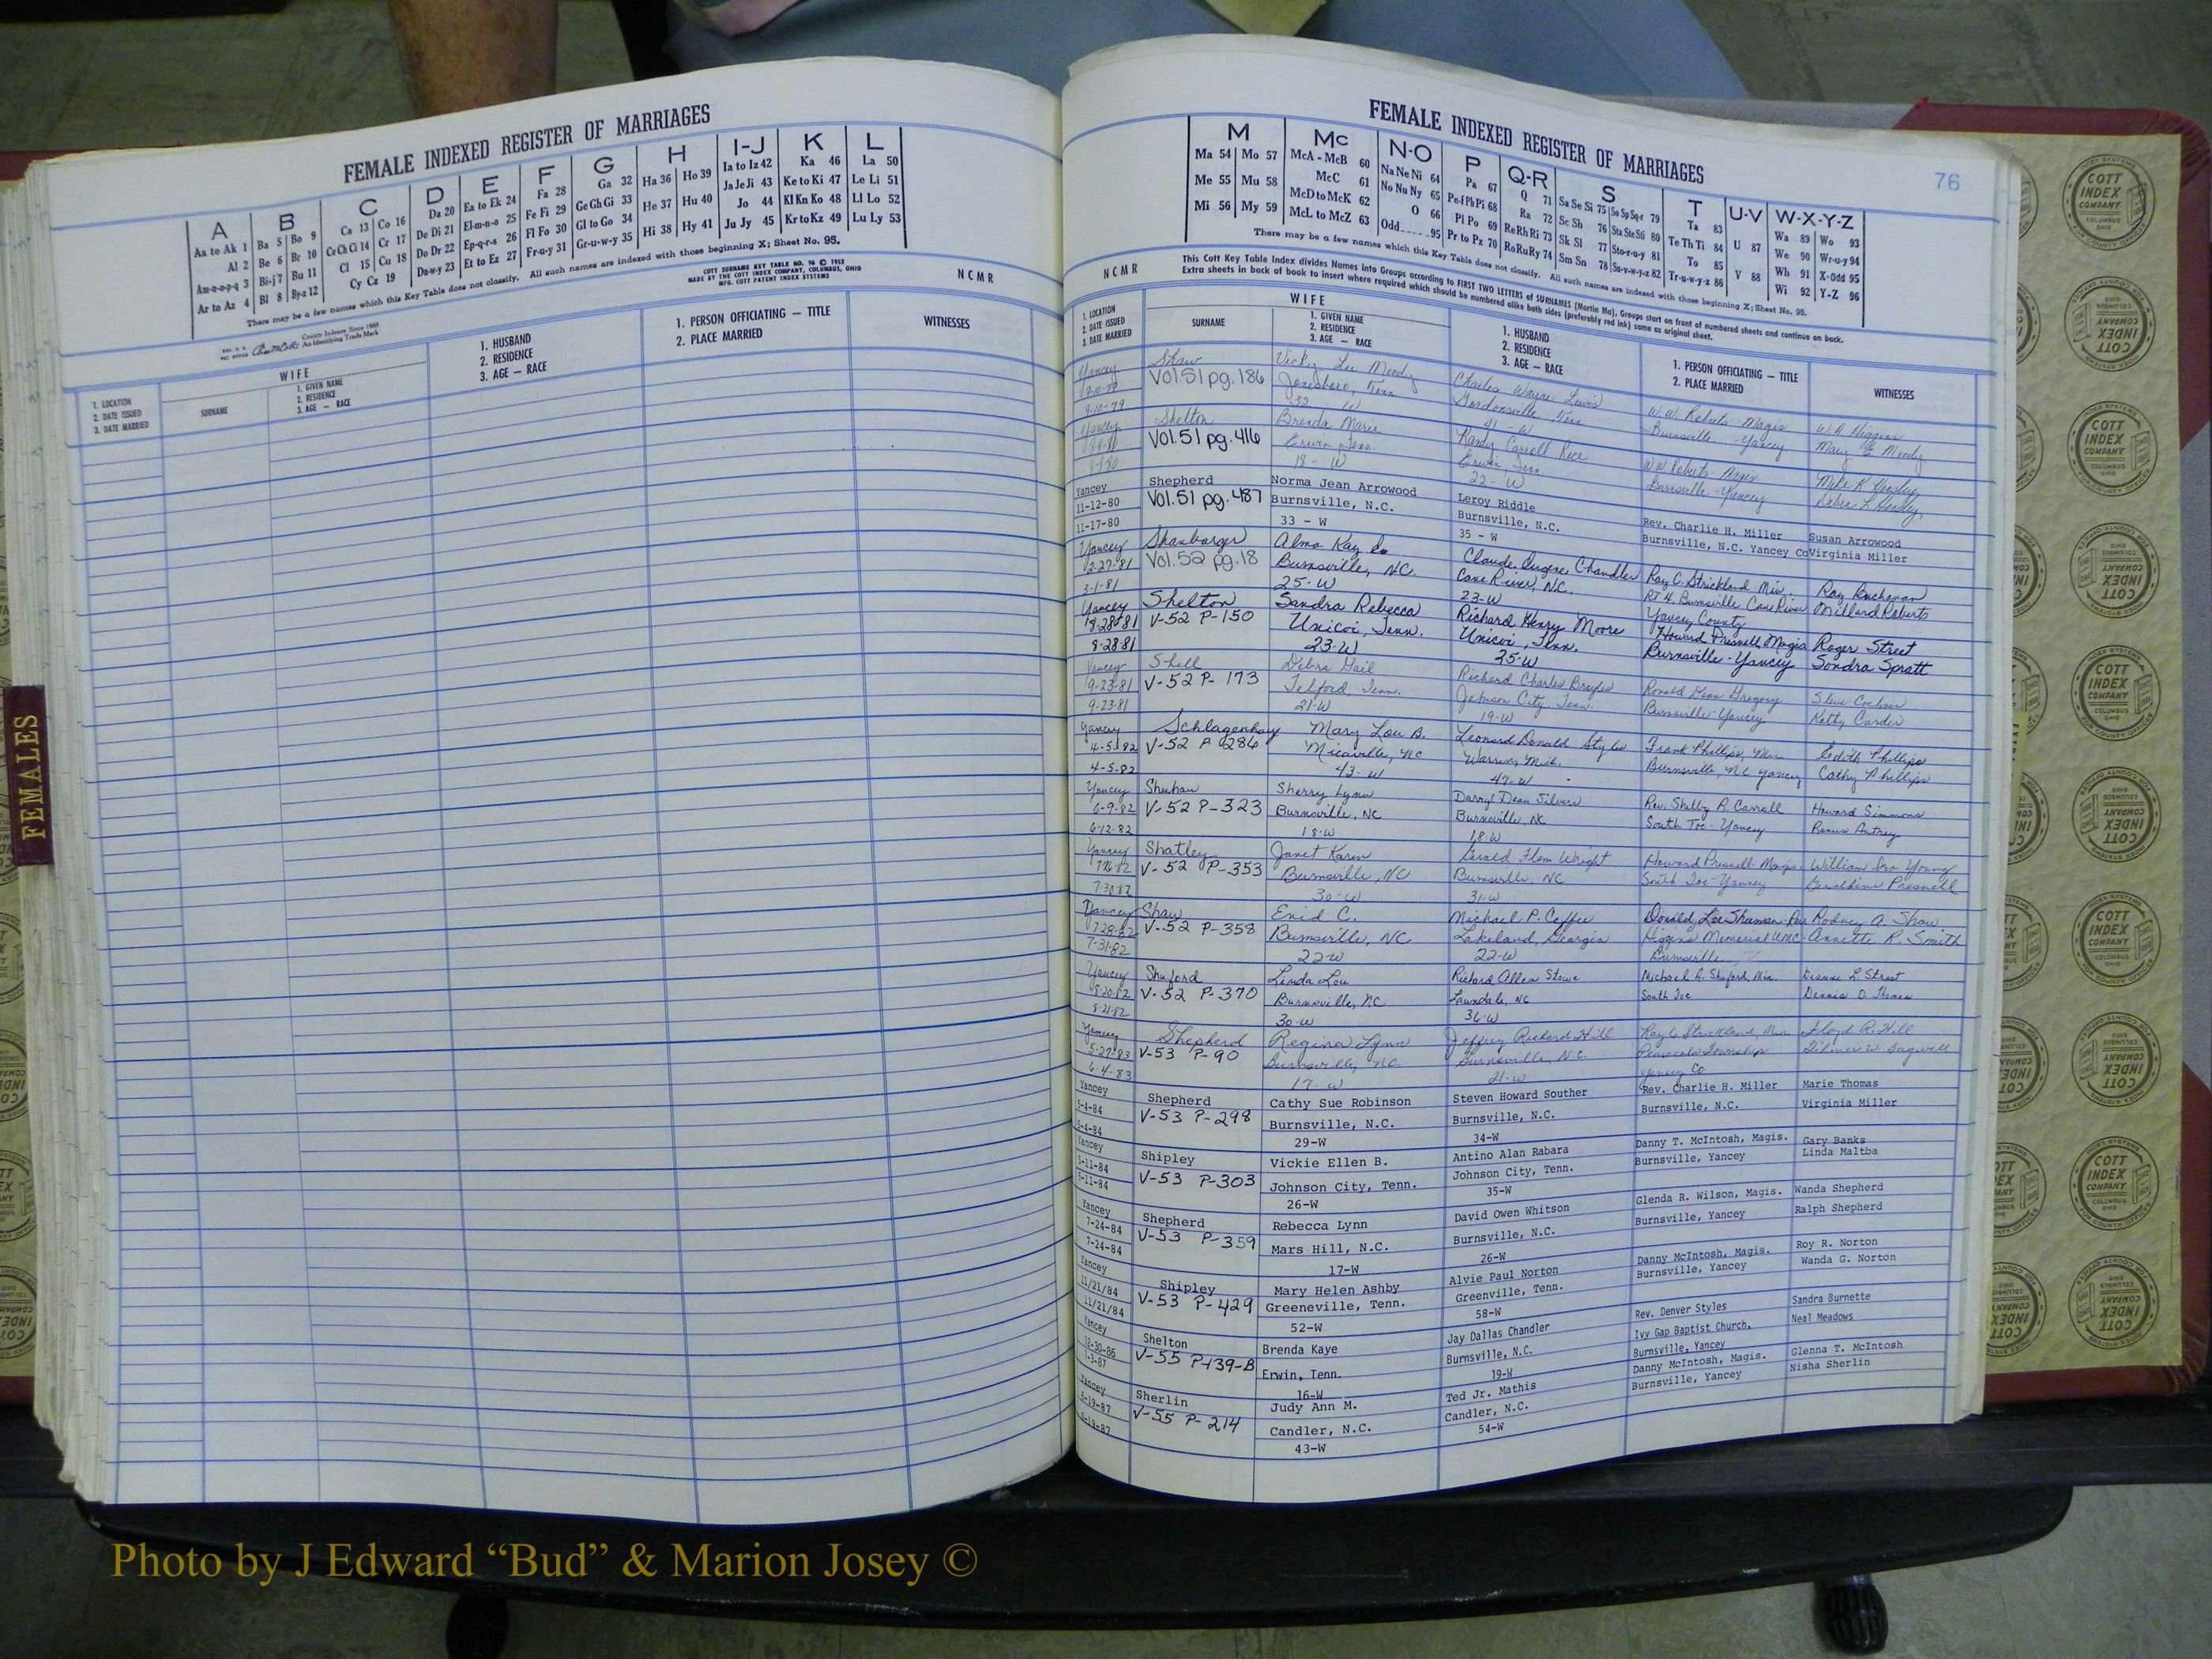 FEMALE INDEXED REGISTER OF MARRIAGES
A
Aa to Ak 1
Al 2
Am-n-o-p-q 3
Ar to Az 4
B
Ba 5 Bo 9
Be 6 Br 10
Bi-j 7 Bu 11
Bl 8 By-z 12
C
Ca 13 Co 16
Ce Ch Ci 14 Cr 17
Cl 15 Cu 18
Cy Cz 19
D
Da 20
De Di 21
Do Dr 22
Du-w-y 23
E
Ea to Ek 24
El-m-n-o 25
Ep-q-r-s 26
Et to Ez 27
F
Fa 28
Fe Fi 29
Fl Fo 30
Fr-u-y 31
G
Ga 32
Ge Gh Gi 33
Gl to Go 34
Gr-u-w-y 35
H
Ha 36 Ho 39
He 37 Hu 40
Hi 38 Hy 41
I-J
Ia to Iz 42
Ja Je Ji 43
Jo 44
Ju Jy 45
K
Ka 46
Ke to Ki 47
Kl Kn Ko 48
Kr to Kz 49
L
La 50
Le Li 51
Ll Lo 52
Lu Ly 53
There may be a few names which this Key Table does not classify. All such names are indexed with those beginning X; Sheet No. 95.
County Indexes Since 1888
An Identifying Trade Mark
COTT SURNAME KEY TABLE NO. 96 © 1953
MADE BY THE COTT INDEX COMPANY, COLUMBUS, OHIO
MFG. COTT PATENT INDEX SYSTEMS
NCMR
1. LOCATION
2. DATE ISSUED
3. DATE MARRIED
WIFE
SURNAME
1. GIVEN NAME
2. RESIDENCE
3. AGE — RACE
1. HUSBAND
2. RESIDENCE
3. AGE — RACE
1. PERSON OFFICIATING — TITLE
2. PLACE MARRIED
WITNESSES
FEMALES
FEMALE INDEXED REGISTER OF MARRIAGES
76
M
Ma 54 Mo 57
Me 55 Mu 58
Mi 56 My 59
Mc
McA - McB 60
McC 61
McD to McK 62
McL to McZ 63
N-O
Na Ne Ni 64
No Nu Ny 65
O 66
Odd 95
P
Pa 67
Pe-f Ph Pi 68
Pl Po 69
Pr to Pz 70
Q-R
Q 71
Ra 72
Re Rh Ri 73
Ro Ru Ry 74
S
Sa Se Si 75 So Sp Sq-r 79
Sc Sh 76 Sta Ste Sti 80
Sk Sl 77 Sto-r-u-y 81
Sm Sn 78 Su-v-w-y-z 82
T
Ta 83
Te Th Ti 84
To 85
Tr-u-w-y-z 86
U-V
U 87
V 88
W-X-Y-Z
Wa 89 Wo 93
We 90 Wr-u-y 94
Wh 91 X-Odd 95
Wi 92 Y-Z 96
There may be a few names which this Key Table does not classify. All such names are indexed with those beginning X; Sheet No. 95.
NCMR
This Cott Key Table Index divides Names into Groups according to FIRST TWO LETTERS of SURNAMES (Martin Ma). Groups start on front of numbered sheets and continue on back.
Extra sheets in back of book to insert where required which should be numbered alike both sides (preferably red ink) same as original sheet.
1. LOCATION
2. DATE ISSUED
3. DATE MARRIED
WIFE
SURNAME
1. GIVEN NAME
2. RESIDENCE
3. AGE — RACE
1. HUSBAND
2. RESIDENCE
3. AGE — RACE
1. PERSON OFFICIATING — TITLE
2. PLACE MARRIED
WITNESSES
Yancey Shaw Vicky Lee Moody Charles Wayne Lewis W.W. Roberts - Magis W.A. Higgins
Vol 51 pg. 186 Jonesboro, Tenn Gordonsville, Tenn Burnsville - Yancey Mary E. Moody
9-10-79 32 - W 41 - W
Yancey Shelton Brenda Marie Randy Carroll Rice W.W. Roberts - Magis Mike R. Hensley
Vol. 51 pg. 416 Erwin, Tenn Erwin, Tenn Burnsville - Yancey Debra L. Hensley
8-8-80 18 - W 22 - W
Yancey Shepherd Norma Jean Arrowood Leroy Riddle Rev. Charlie H. Miller Susan Arrowood
11-12-80 Vol. 51 pg. 487 Burnsville, N.C. Burnsville, N.C. Burnsville, N.C. Yancey Co Virginia Miller
11-17-80 33 - W 35 - W
Yancey Shanbarger Alma Kay Claude Eugene Chandler Ray C. Strickland Min. Ray Buchanan
2-27-81 Vol. 52 pg. 18 Burnsville, NC. Cane River, N.C. RT 4, Burnsville Cane River Millard Roberts
3-1-81 25-W 23-W Yancey County
Yancey Shelton Sandra Rebecca Richard Henry Moore Howard Presnell, Magis Roger Street
8-28-81 V-52 P-150 Unicoi, Tenn. Unicoi, Tenn. Burnsville - Yancey Sondra Spratt
8-28-81 23-W 25-W
Yancey Shell Debra Gail Richard Charles Ronald Dean Gregory Steve
9-23-81 V-52 P-173 Telford, Tenn. Johnson City, Tenn. Burnsville-Yancey Kathy Carder
9-23-81 21-W 19-W
Yancey Schlagenhauf Mary Lou B. Leonard Donald Styles Frank Phillips, Min Edith Phillips
4-5-82 V-52 P 286 Micaville, NC Warren, Mich. Burnsville, N.C Yancey Cathy Phillips
4-5-82 43-W 47-W
Yancey Shehan Sherry Lynn Darryl Dean Silvers Rev. Shelby R. Carroll Howard Simmons
6-9-82 V-52 P-323 Burnsville, NC Burnsville, NC South Toe - Yancey Autrey
6-12-82 18-W 18-W
Yancey Shatley Janet Karen Gerald Flem Wright Howard Presnell-Magis. William Ira Young
7-26-82 V-52 P-353 Burnsville, NC Burnsville, NC South Toe-Yancey Geraldine Presnell
7-30-82 30-W 31-W
Yancey Shaw Enid C. Michael P. Coffee Donald Lee Rodney A. Shaw
7-28-82 V-52 P-358 Burnsville, NC Lakeland, Georgia Higgins Memorial UMC Annette R. Smith
7-31-82 22-W 22-W Burnsville
Yancey Shuford Linda Lou Richard Allen Stowe Michael L. Shuford, Min. L. Street
8-20-82 V-52 P-370 Burnsville, NC Lawndale, NC South Toe Dennis O. Thomas
8-21-82 30-W 36-W
Yancey Shepherd Regina Lynn Jeffrey Richard Hill Ray C. Strickland Min Floyd R. Hill
5-27-83 V-53 P-90 Burnsville, NC Burnsville, N.C. Pensacola Township Gilmer W. Bagwell
6-4-83 17-W 21-W Yancey Co
Yancey Shepherd Cathy Sue Robinson Steven Howard Souther Rev. Charlie H. Miller Marie Thomas
5-4-84 V-53 P-298 Burnsville, N.C. Burnsville, N.C. Burnsville, N.C. Virginia Miller
5-4-84 29-W 34-W
Yancey Shipley Vickie Ellen B. Antino Alan Rabara Danny T. McIntosh, Magis. Gary Banks
5-11-84 V-53 P-303 Johnson City, Tenn. Johnson City, Tenn. Burnsville, Yancey Linda Maltba
5-11-84 26-W 35-W
Yancey Shepherd Rebecca Lynn David Owen Whitson Glenda R. Wilson, Magis. Wanda Shepherd
7-24-84 V-53 P-359 Mars Hill, N.C. Burnsville, N.C. Burnsville, Yancey Ralph Shepherd
7-24-84 17-W 26-W
Yancey Shipley Mary Helen Ashby Alvie Paul Norton Danny McIntosh, Magis. Roy R. Norton
11/21/84 V-53 P-429 Greeneville, Tenn. Greenville, Tenn. Burnsville, Yancey Wanda G. Norton
11/21/84 52-W 58-W
Yancey Shelton Brenda Kaye Jay Dallas Chandler Rev. Denver Styles Sandra Burnette
12-30-86 V-55 P-139-B Erwin, Tenn. Burnsville, N.C. Ivy Gap Baptist Church. Neal Meadows
1-3-87 16-W 19-W Burnsville, Yancey
Yancey Sherlin Judy Ann M. Ted Jr. Mathis Danny McIntosh, Magis. Glenna T. McIntosh
6-19-87 V-55 P-214 Candler, N.C. Candler, N.C. Burnsville, Yancey Nisha Sherlin
6-19-87 43-W 54-W
COTT INDEX COMPANY COLUMBUS OHIO
Photo by J Edward “Bud” & Marion Josey ©